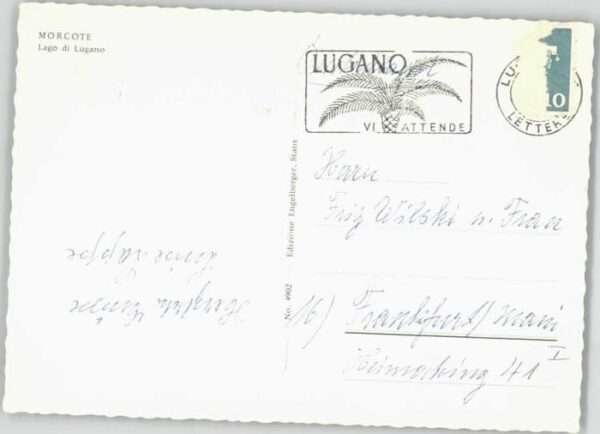 MORCOTE
Lago di Lugano
LUGANO
VI ATTENDE
LETTERE
10
No. 4902 Edizione Engelberger, Stans
Herrn
Fritz Wilski u. Frau
16) Frankfurt/Main
41 I
Herzliche Grüße